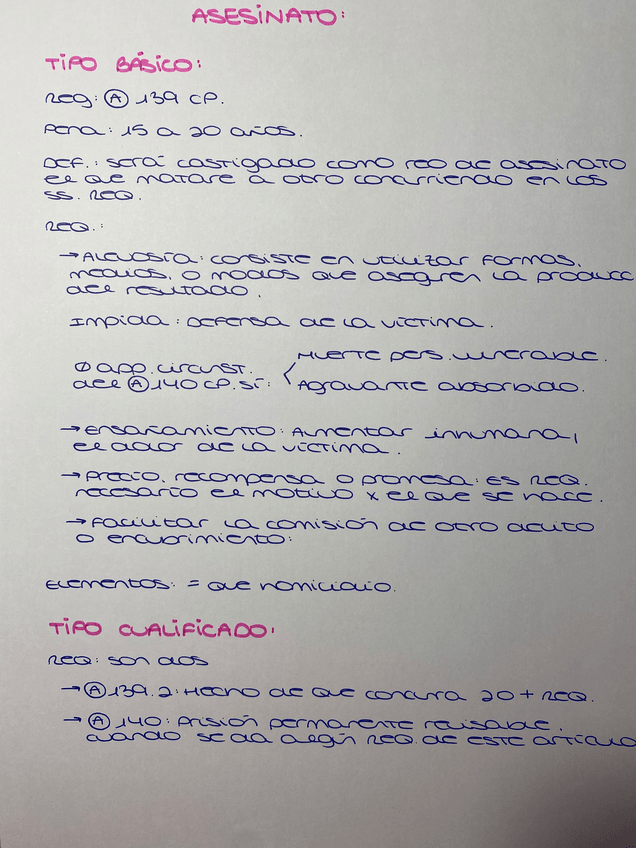 ASESINATO:
TIPO BÁSICO:
REQ: Ⓐ 139 CP.
PENA: 15 a 20 años.
DEF.: será castigado como reo de asesinato
el que matare a otro concurriendo en los
ss. REQ.
REQ.:
→ Alevosía: consiste en utilizar formas,
medios, o modos que aseguren la producc
del resultado.
Impida: DEFENSA de la víctima.
Ø app. circunst. Muerte pers. vulnerable.
del Ⓐ 140 CP. si: Agravante absorbido.
→ Ensañamiento: Aumentar inhumana,
el dolor de la víctima.
→ Precio, recompensa o promesa: ES REQ.
necesario el motivo x el que se hace.
→ Facilitar la comisión de otro delito
o encubrimiento:
Elementos: = que homicidio.
TIPO CUALIFICADO:
REQ: son dos
→ Ⓐ 139.2: Hecho de que concurra 2 o + REQ.
→ Ⓐ 140: Prisión permanente revisable,
cuando se da algún REQ. de este artículo